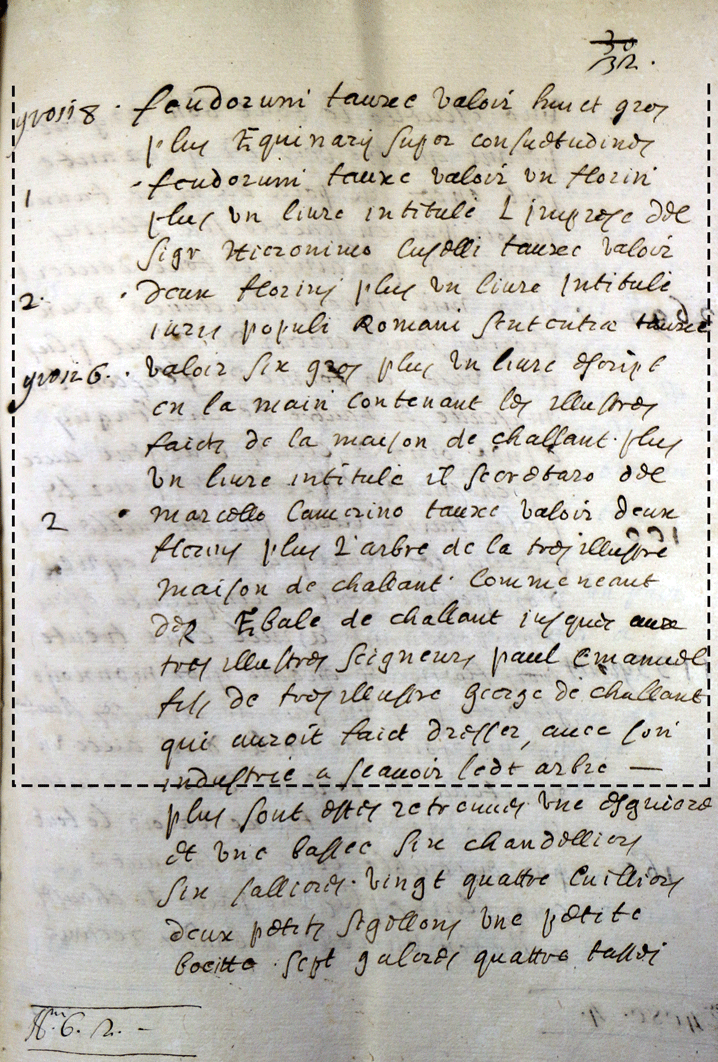 32.
grosis 8 · feudorum taxee valoir huict gros
plus Equinarÿ super consuetudines
1 - feudorum taxee valoir un florin
plus un livre intitule L imprese del
Sigr Hieronimo taxee valoir
2. · deux florins plus un livre intitule
iuris populi Romani sententiæ taxee
gros 6. · valoir six gros plus un livre escript
en la main contenant les illustres
faicts de la maison de challant plus
un livre intitule il secretaro del
2 · marcello Camerino taxee valoir deux
florins plus l'arbre de la tres illustre
maison de challant Commencant
des Ebale de challant jusques aux
tres illustres seigneurs paul Emanuel
fils de tres illustre george de challant
qui auroit faict dresser, avec son
industrie a scauoir ledt arbre —
plus sont estes retreuues une esguiere
et une bassee six chandelliers
six sallieres vingt quattre Cuilliers
deux petits segollons une petite
boeitte sept quattre tasses
6. 2. -